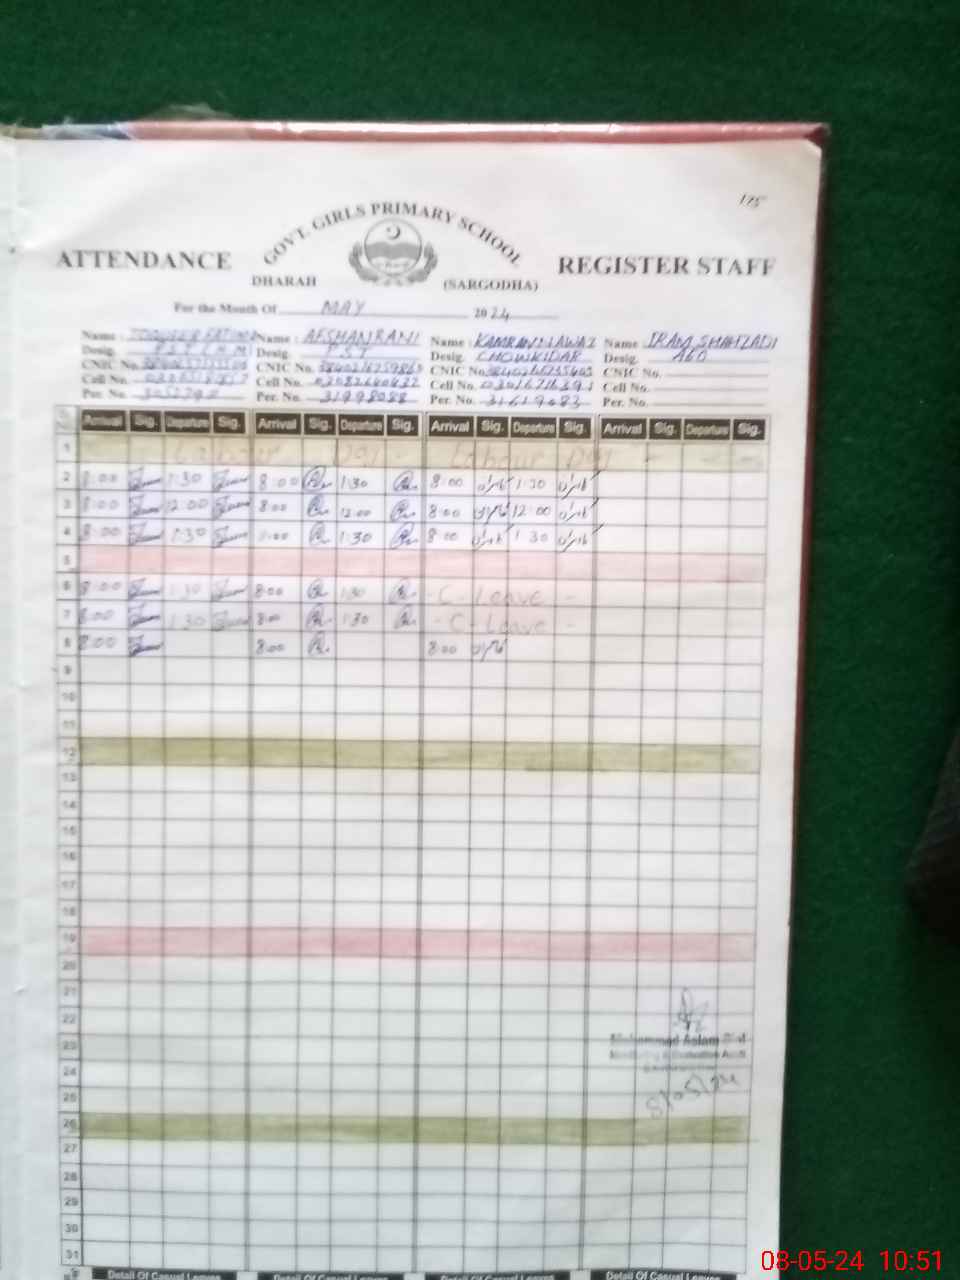 125
GOVT. GIRLS PRIMARY SCHOOL
ATTENDANCE REGISTER STAFF
DHARAH (SARGODHA)
For the Month Of MAY 2024
Name : FATIMA Name : AFSHAN RANI Name : KAMRAN NAWAZ Name : IRAM SHAHZADI
Desig. Desig. PST Desig. CHOWKIDAR Desig. AEO
CNIC No. CNIC No. CNIC No. CNIC No.
Cell No. Cell No. Cell No. Cell No.
Per. No. Per. No. 31998088 Per. No. 31619083 Per. No.
Arrival Sig. Departure Sig. Arrival Sig. Departure Sig. Arrival Sig. Departure Sig. Arrival Sig. Departure Sig.
1 Labour Day - Labour Day - - -
2 8:00 1:30 8:00 1:30 8:00 1:30
3 8:00 12:00 8:00 12:00 8:00 12:00
4 8:00 1:30 8:00 1:30 8:00 1:30
5
6 8:00 1:30 8:00 1:30 - C - Leave -
7 8:00 1:30 8:00 1:30 - C - Leave -
8 8:00 8:00 8:00
9
10
11
12
13
14
15
16
17
18
19
20
21
22
23
Muhammad Aslam
Monitoring & Evaluation
24
8/05/24
25
26
27
28
29
30
31
Detail Of Casual Leaves Detail Of Casual Leaves Detail Of Casual Leaves Detail Of Casual Leaves
08-05-24 10:51